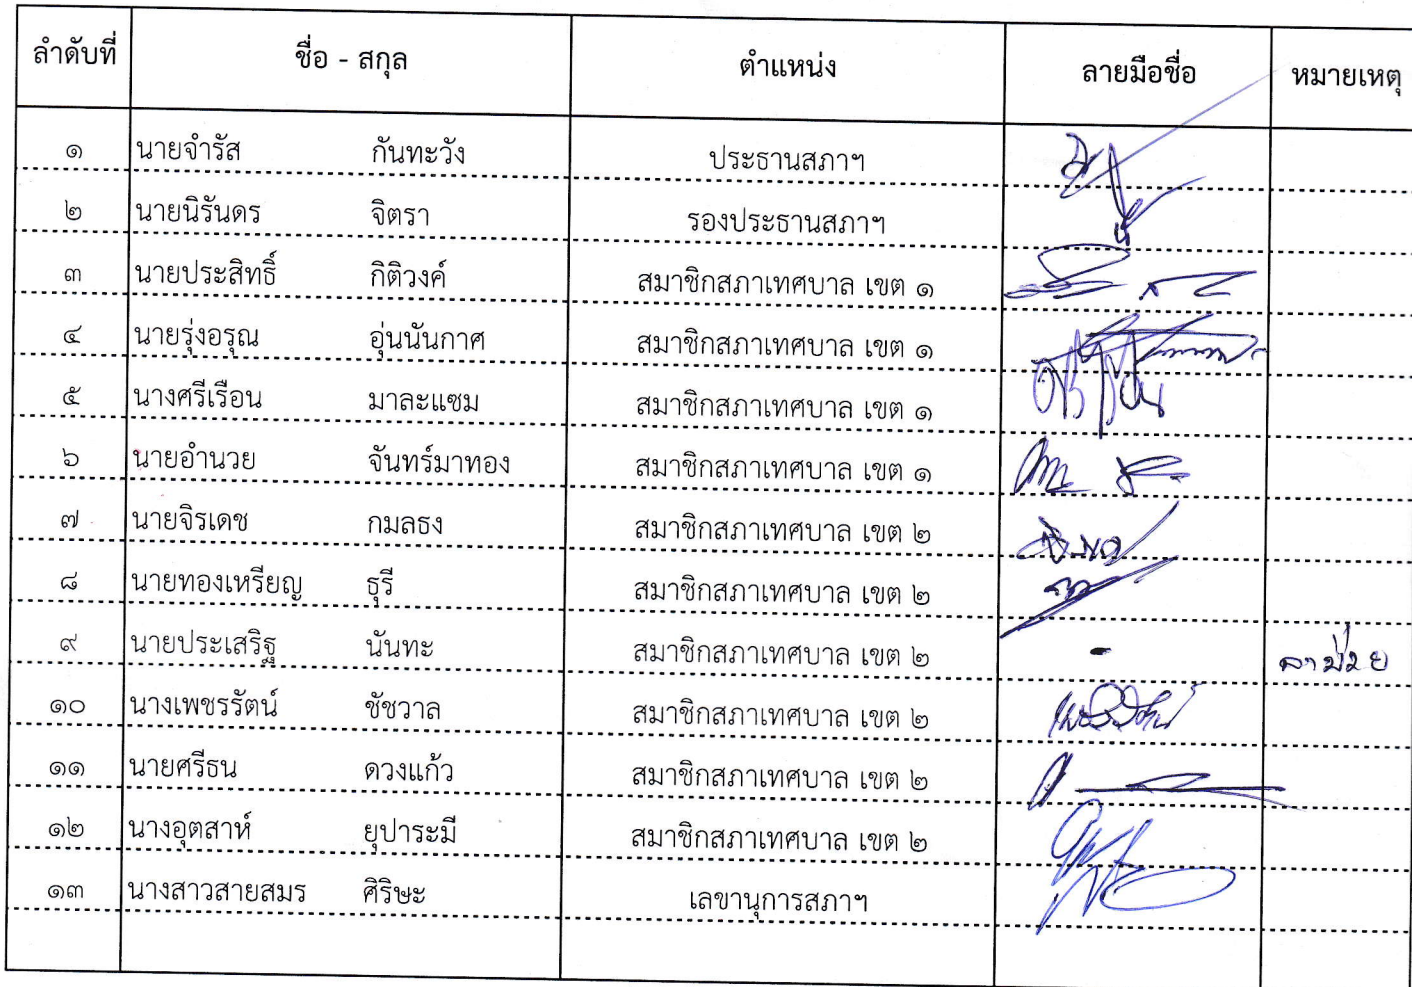 ลำดับที่ ชื่อ - สกุล ตำแหน่ง ลายมือชื่อ หมายเหตุ
๑ นายจำรัส กันทะวัง ประธานสภาฯ
๒ นายนิรันดร จิตรา รองประธานสภาฯ
๓ นายประสิทธิ์ กิติวงค์ สมาชิกสภาเทศบาล เขต ๑
๔ นายรุ่งอรุณ อุ่นนันกาศ สมาชิกสภาเทศบาล เขต ๑
๕ นางศรีเรือน มาละแซม สมาชิกสภาเทศบาล เขต ๑
๖ นายอำนวย จันทร์มาทอง สมาชิกสภาเทศบาล เขต ๑
๗ นายจิรเดช กมลธง สมาชิกสภาเทศบาล เขต ๒
๘ นายทองเหรียญ ธุรี สมาชิกสภาเทศบาล เขต ๒
๙ นายประเสริฐ นันทะ สมาชิกสภาเทศบาล เขต ๒ - ลาป่วย
๑๐ นางเพชรรัตน์ ชัชวาล สมาชิกสภาเทศบาล เขต ๒
๑๑ นายศรีธน ดวงแก้ว สมาชิกสภาเทศบาล เขต ๒
๑๒ นางอุตสาห์ ยุปาระมี สมาชิกสภาเทศบาล เขต ๒
๑๓ นางสาวสายสมร ศิริษะ เลขานุการสภาฯ